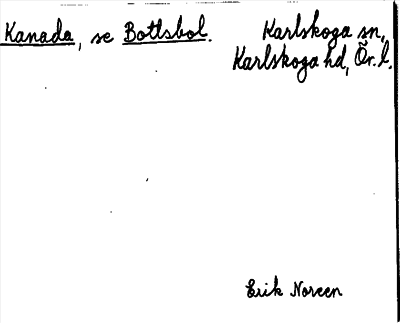 Kanada, se Bottsbol.
Karlskoga sn,
Karlskoga hd, Ör. l.
Erik Noreen